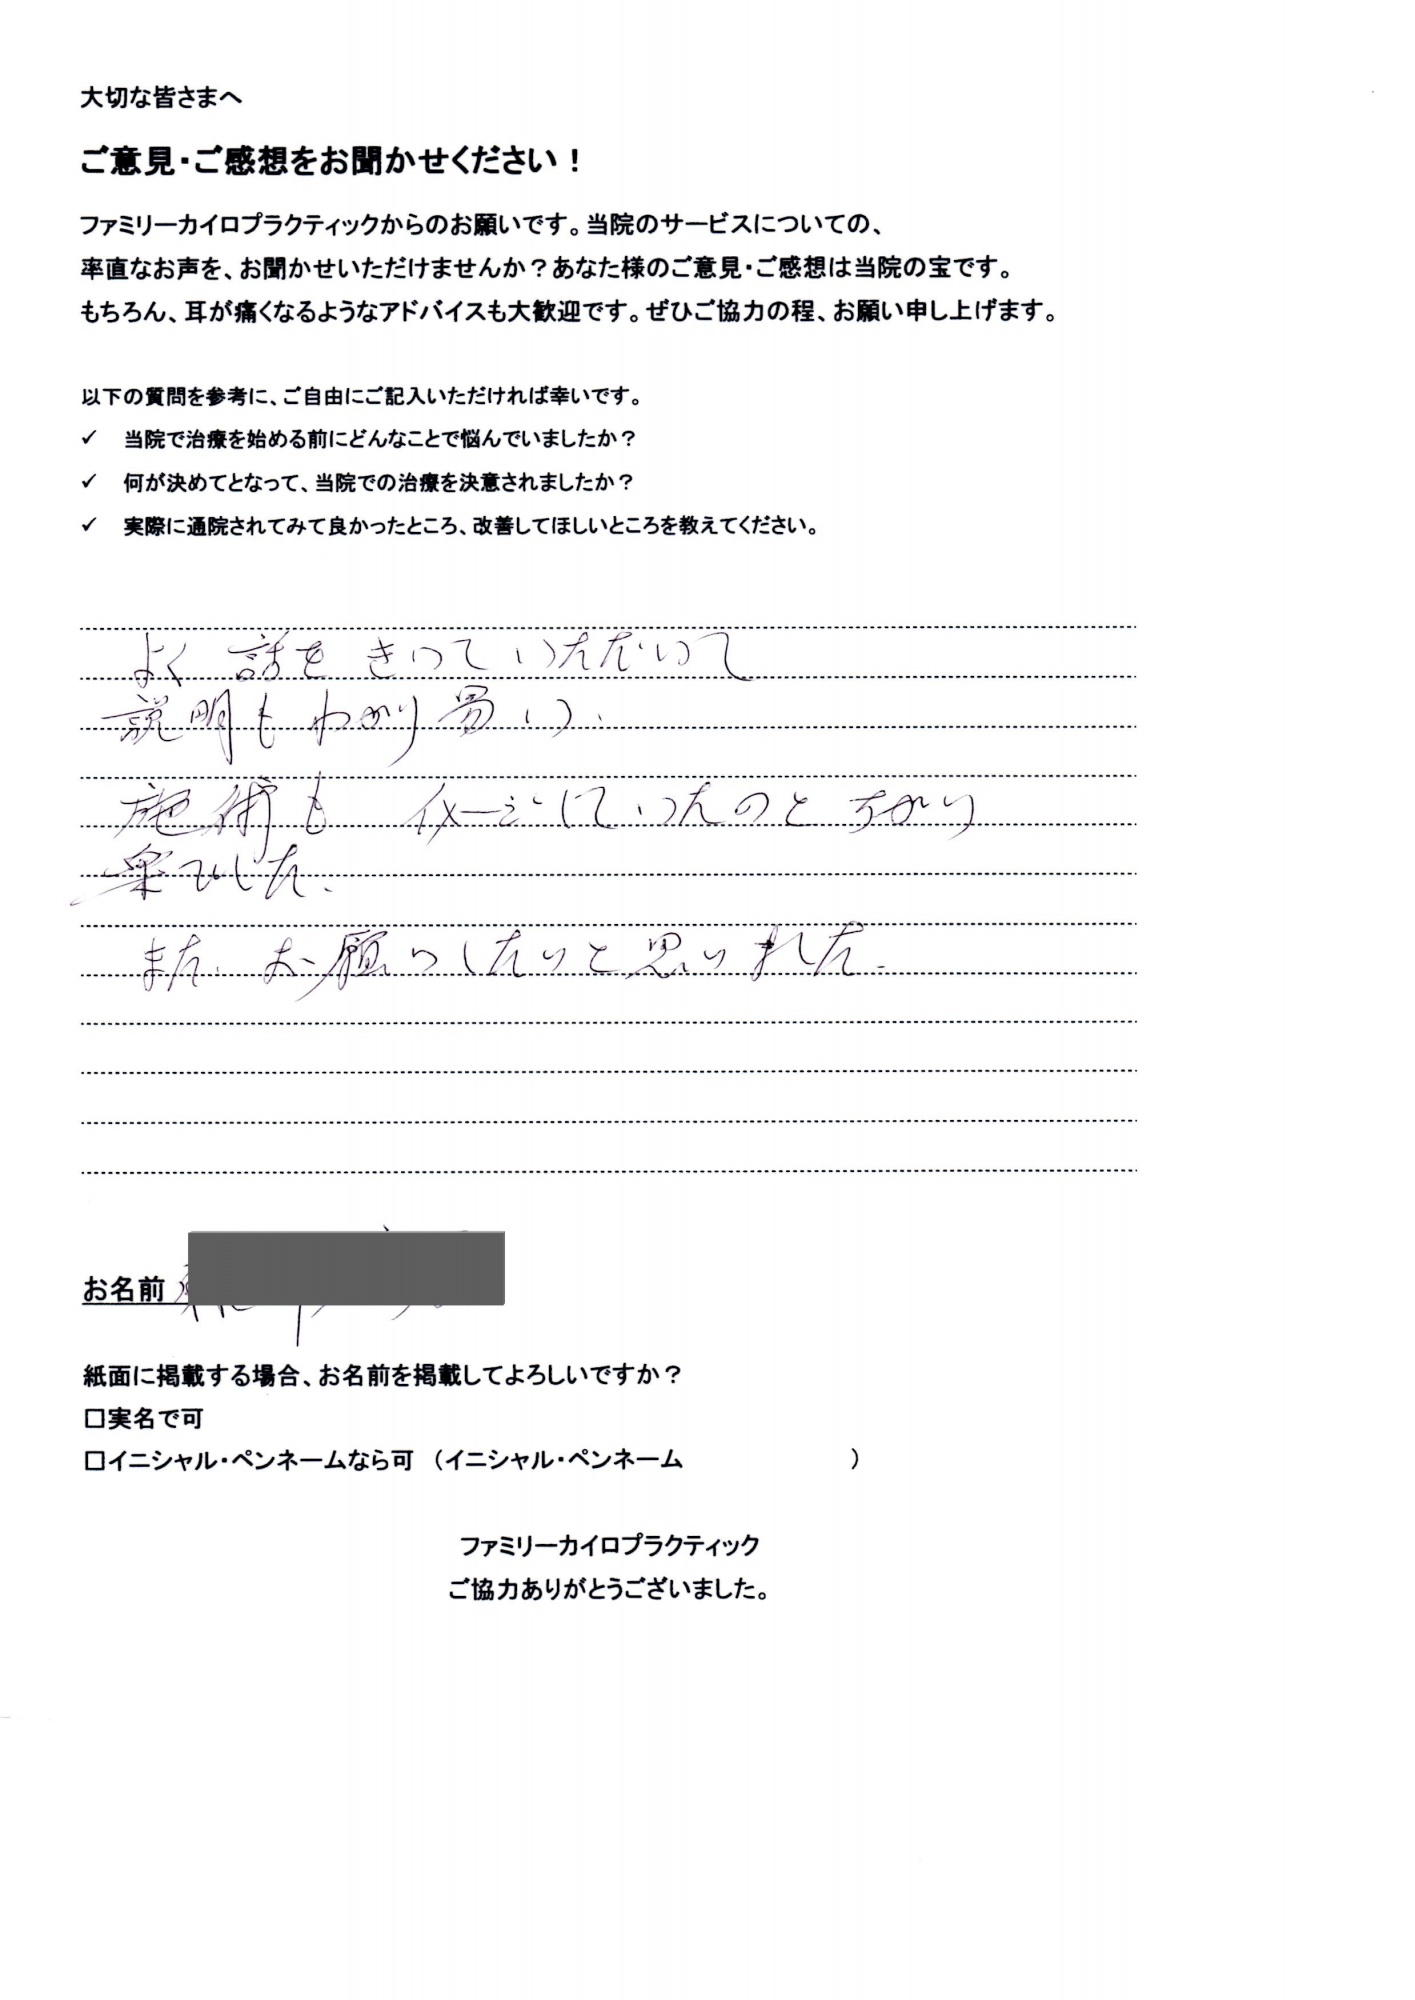 大切な皆さまへ
ご意見・ご感想をお聞かせください！
ファミリーカイロプラクティックからのお願いです。当院のサービスについての、
率直なお声を、お聞かせいただけませんか？あなた様のご意見・ご感想は当院の宝です。
もちろん、耳が痛くなるようなアドバイスも大歓迎です。ぜひご協力の程、お願い申し上げます。
以下の質問を参考に、ご自由にご記入いただければ幸いです。
✓ 当院で治療を始める前にどんなことで悩んでいましたか？
✓ 何が決めてとなって、当院での治療を決意されましたか？
✓ 実際に通院されてみて良かったところ、改善してほしいところを教えてください。
よく 話を きいて いただいて
説明も わかり易い、
施術も イメージしていたのと ちがい
楽でした、
また、お願いしたいと思いました。
お名前
紙面に掲載する場合、お名前を掲載してよろしいですか？
□実名で可
□イニシャル・ペンネームなら可 （イニシャル・ペンネーム ）
ファミリーカイロプラクティック
ご協力ありがとうございました。